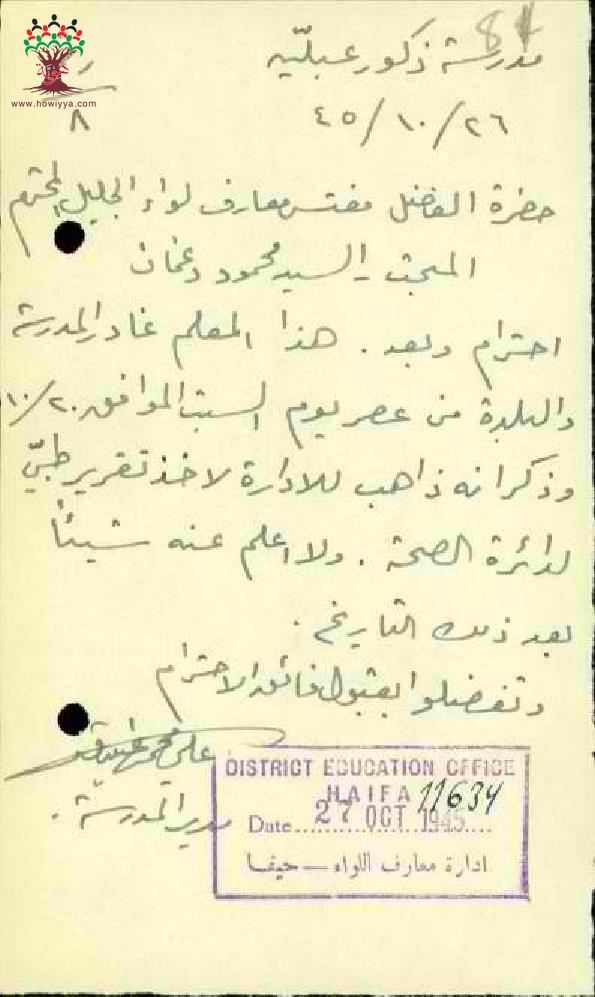 84
مدرسة ذكور عبلّيه
www.howiyya.com
٨
٢٦/١٠/٤٥
حضرة الفاضل مفتش معارف لواء الجليل المحترم
المبحث - السيد محمود دغمان
احترام وبعد . هذا المعلم غادر المدرسة
والبلدة من عصر يوم السبت الموافق ٢٠/١٠
وذكر انه ذاهب للادارة لاخذ تقرير طبّي
لدائرة الصحة . ولا اعلم عنه شيئاً
بعد ذلك التاريخ .
وتفضلوا بقبول فائق الاحترام
علي محمد
مدير المدرسة .
DISTRICT EDUCATION OFFICE
HAIFA 11634
Date 27 OCT 1945
ادارة معارف اللواء – حيفا